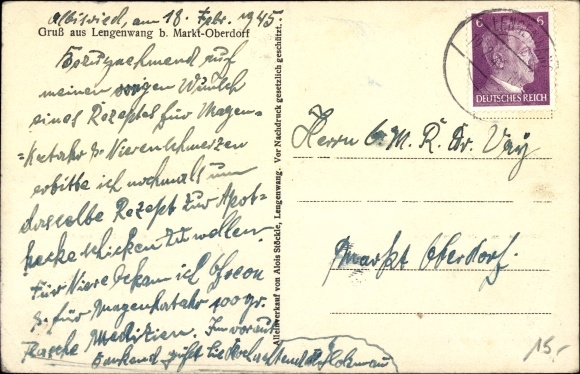 Albisried, am 18. Febr. 1945.
Gruß aus Lengenwang b. Markt-Oberdorf
Bezugnehmend auf
meinen vorigen Wunsch
eines Rezeptes für Magen-
=Katahr & Nierenschmerzen
erbitte ich nochmals um
dasselbe Rezept zur Apot=
hecke schicken zu wollen.
Für Niere bekam ich
& für Magenkatahr 100 gr.
Flasche Medizien. Im voraus
dankend grüßt Sie Hochachtend
Alleinverkauf von Alois Stöckle, Lengenwang. Vor Nachdruck gesetzlich geschützt.
6 6
DEUTSCHES REICH
Herrn M. R. Dr. Vay
Markt Oberdorf.
15.-